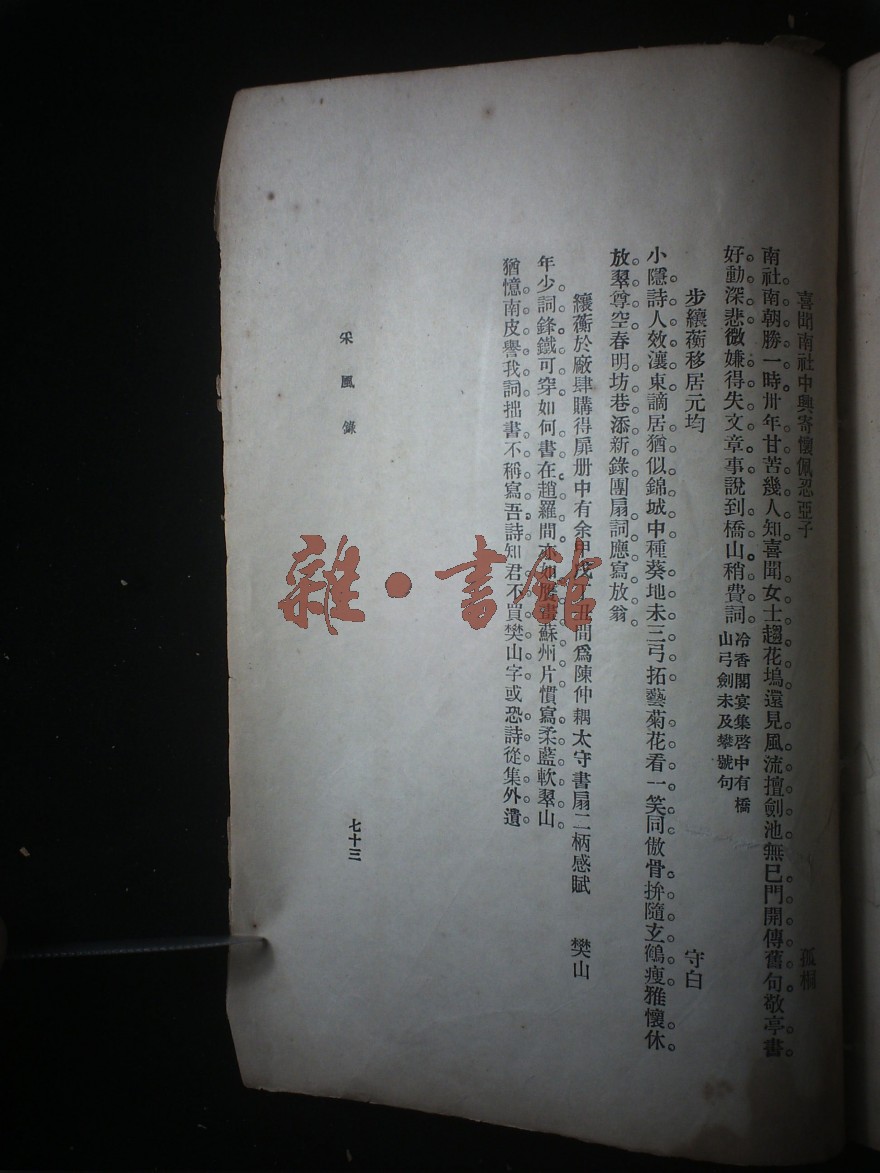 喜聞南社中興寄懷佩忍亞子　孤桐
南社南朝勝一時卅年甘苦幾人知喜聞女士趨花塢還見風流擅劍池無已門開傳舊句敬亭書
好動深悲微嫌得失文章事說到橋山稍費詞冷香閣宴集啓中有橋
山弓劍未及攀號句
步纕蘅移居元均　守白
小隱詩人效瀼東謫居猶似錦城中種葵地未三弓拓藝菊花看一笑同傲骨拚隨玄鶴瘦雅懷休
放翠尊空春明坊巷添新錄團扇詞應寫放翁
纕蘅於廠肆購得扉册中有余甲戌丁丑間爲陳仲耦太守書扇二柄感賦　樊山
年少詞鋒鐵可穿如何書在趙羅間亦如蘇州片慣寫柔藍軟翠山
猶憶南皮譽我詞拙書不稱寫吾詩知君不買樊山字或恐詩從集外遺
采風錄
七十三
雜·書館